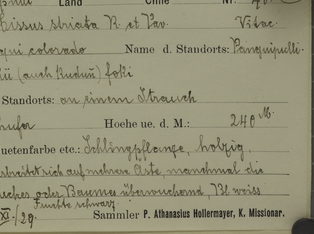 Land Chile Nr.
Cissus striata R. et Pav. Vitac.
qui colorado Name d. Standorts: Panguipulli.
(auch Kuduñ) foki
Standorts: an einem Strauch
ufer Hoehe ue. d. M.: 240 M.
uetenfarbe etc.: Schlingpflanze, holzig,
sich auf mehrere Äste, manchmal die
oder Baumes überwuchernd, Bl. weiss
Früchte schwarz.
XI./29. Sammler P. Athanasius Hollermayer, K. Missionar.